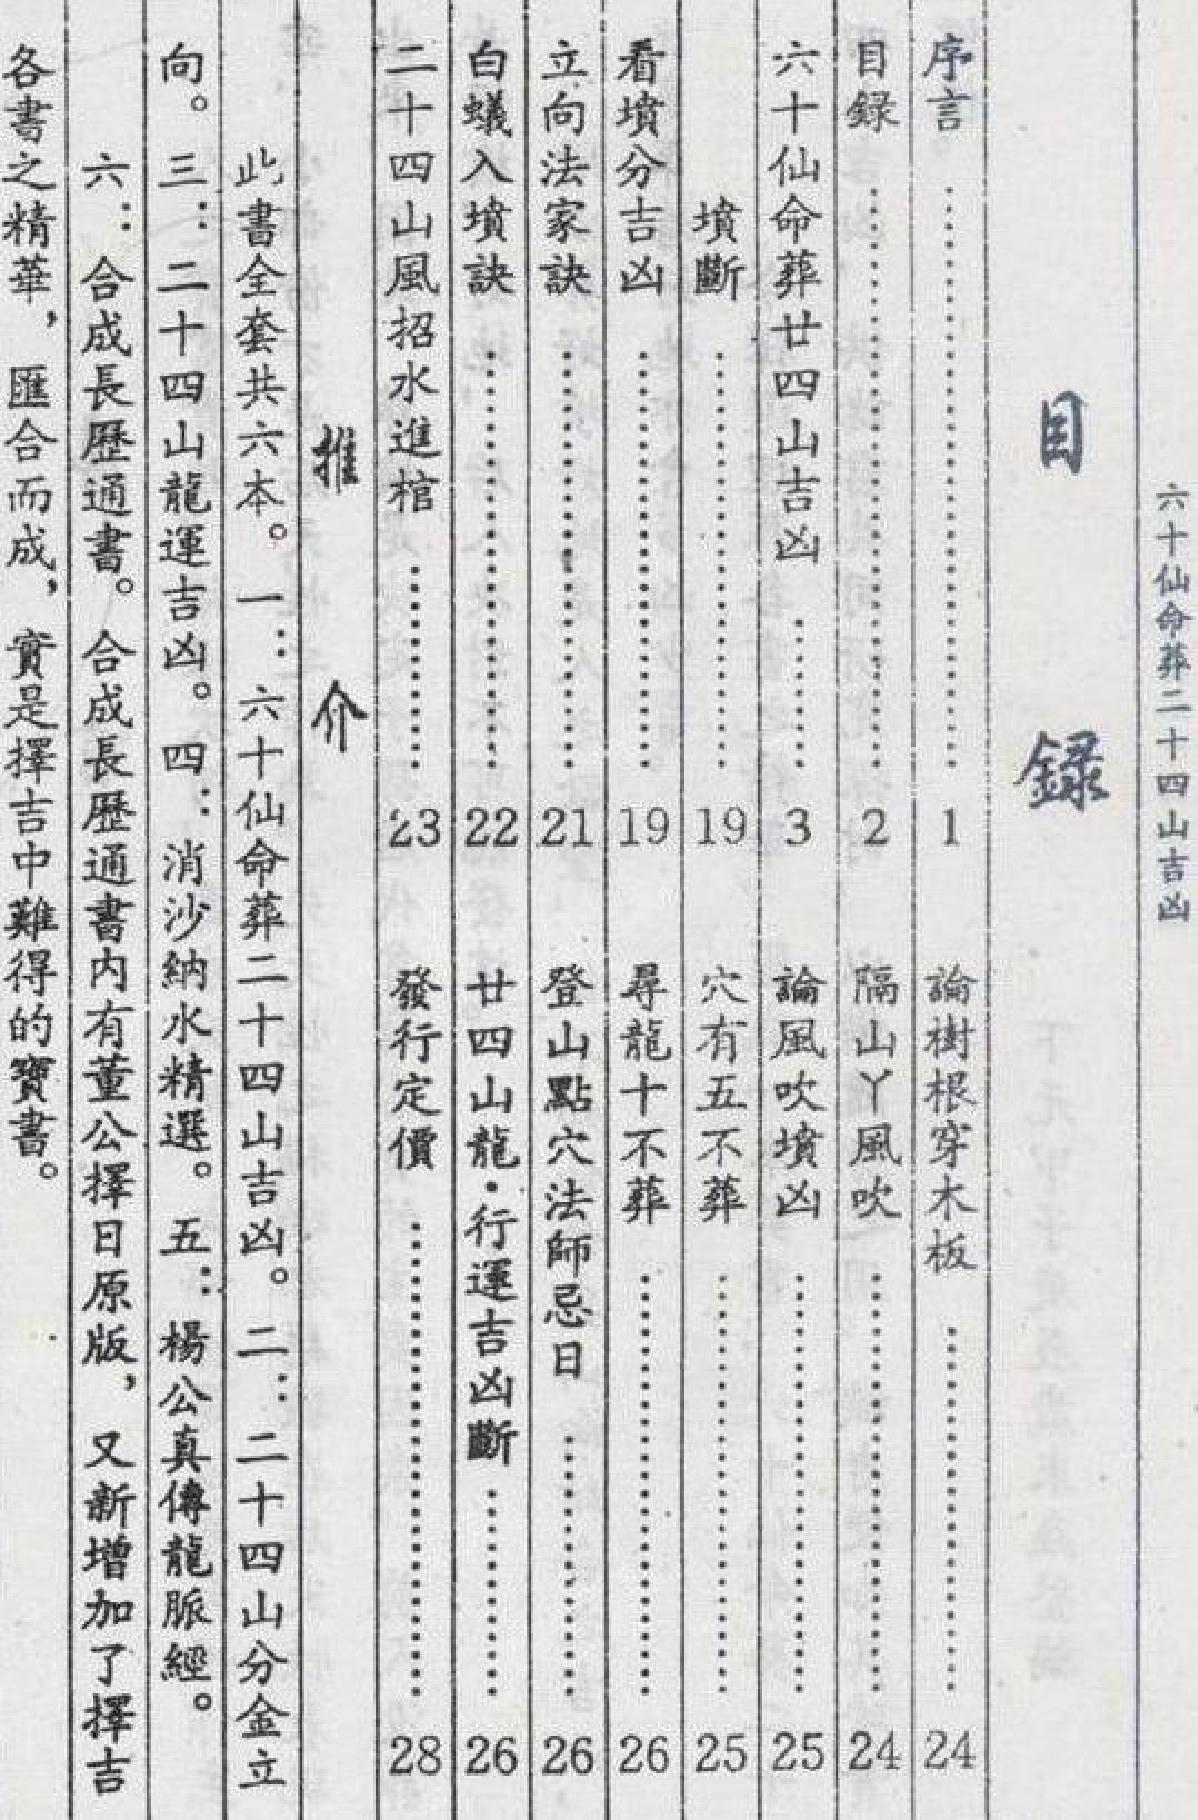 六十仙命葬二十四山吉凶
目錄
序言……………1
目録……………2
六十仙命葬廿四山吉凶……3
墳斷……………19
看墳分吉凶……………19
立向法家訣……………21
白蟻入墳訣……………22
二十四山風招水進棺……23
論樹根穿木板……………24
隔山丫風吹……………24
論風吹墳凶……………25
穴有五不葬……………25
尋龍十不葬……………26
登山點穴法師忌日……26
廿四山龍·行運吉凶斷……26
發行定價……………28
推介
此書全套共六本。一：六十仙命葬二十四山吉凶。二：二十四山分金立
向。三：二十四山龍運吉凶。四：消沙納水精選。五：楊公真傳龍脈經。
六：合成長歷通書。合成長歷通書内有董公擇日原版，又新增加了擇吉
各書之精華，匯合而成，實是擇吉中難得的寶書。